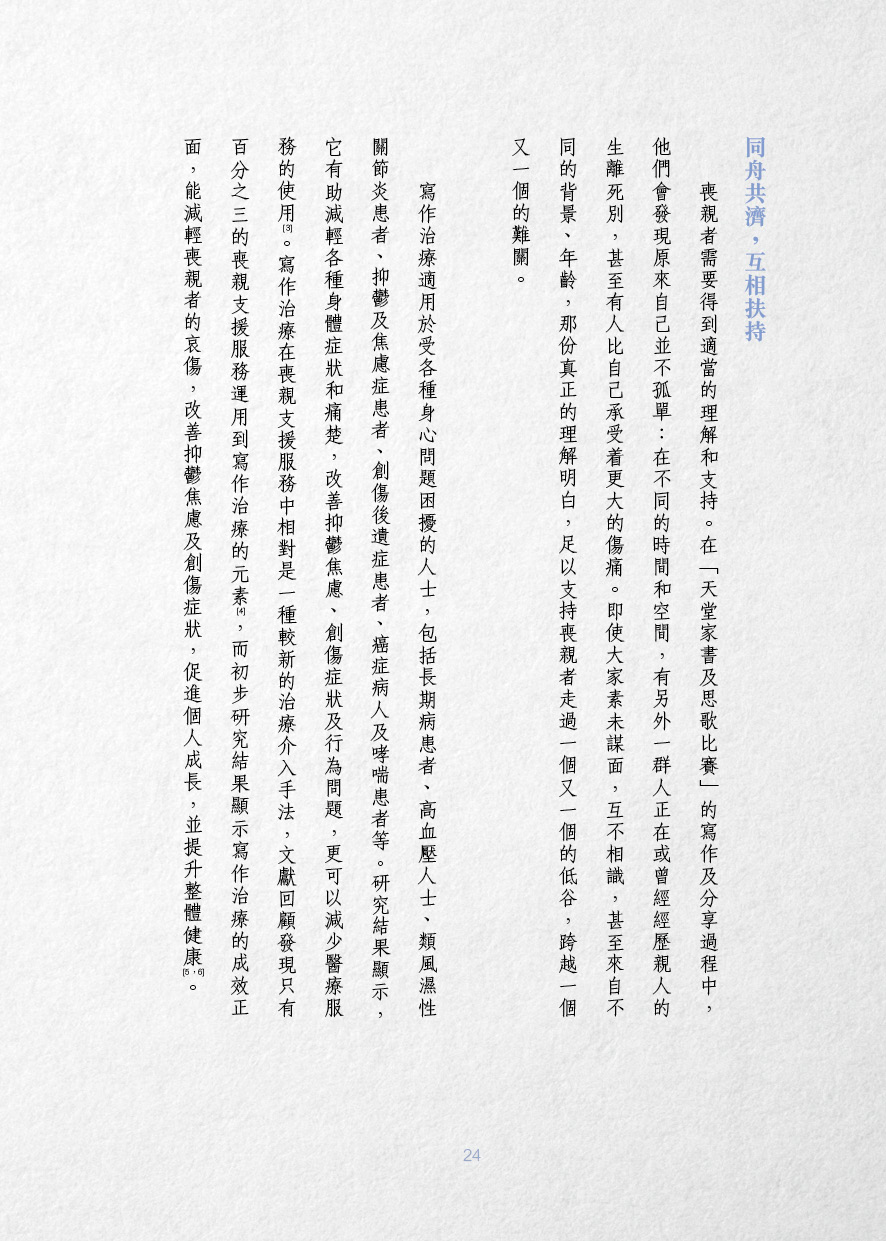 同舟共濟，互相扶持
喪親者需要得到適當的理解和支持。在「天堂家書及思歌比賽」的寫作及分享過程中，
他們會發現原來自己並不孤單：在不同的時間和空間，有另外一群人正在或曾經經歷親人的
生離死別，甚至有人比自己承受着更大的傷痛。即使大家素未謀面，互不相識，甚至來自不
同的背景、年齡，那份真正的理解明白，足以支持喪親者走過一個又一個的低谷，跨越一個
又一個的難關。
寫作治療適用於受各種身心問題困擾的人士，包括長期病患者、高血壓人士、類風濕性
關節炎患者、抑鬱及焦慮症患者、創傷後遺症患者、癌症病人及哮喘患者等。研究結果顯示，
它有助減輕各種身體症狀和痛楚，改善抑鬱焦慮、創傷症狀及行為問題，更可以減少醫療服
務的使用[3]。寫作治療在喪親支援服務中相對是一種較新的治療介入手法，文獻回顧發現只有
百分之三的喪親支援服務運用到寫作治療的元素[4]，而初步研究結果顯示寫作治療的成效正
面，能減輕喪親者的哀傷，改善抑鬱焦慮及創傷症狀，促進個人成長，並提升整體健康[5，6]。
24